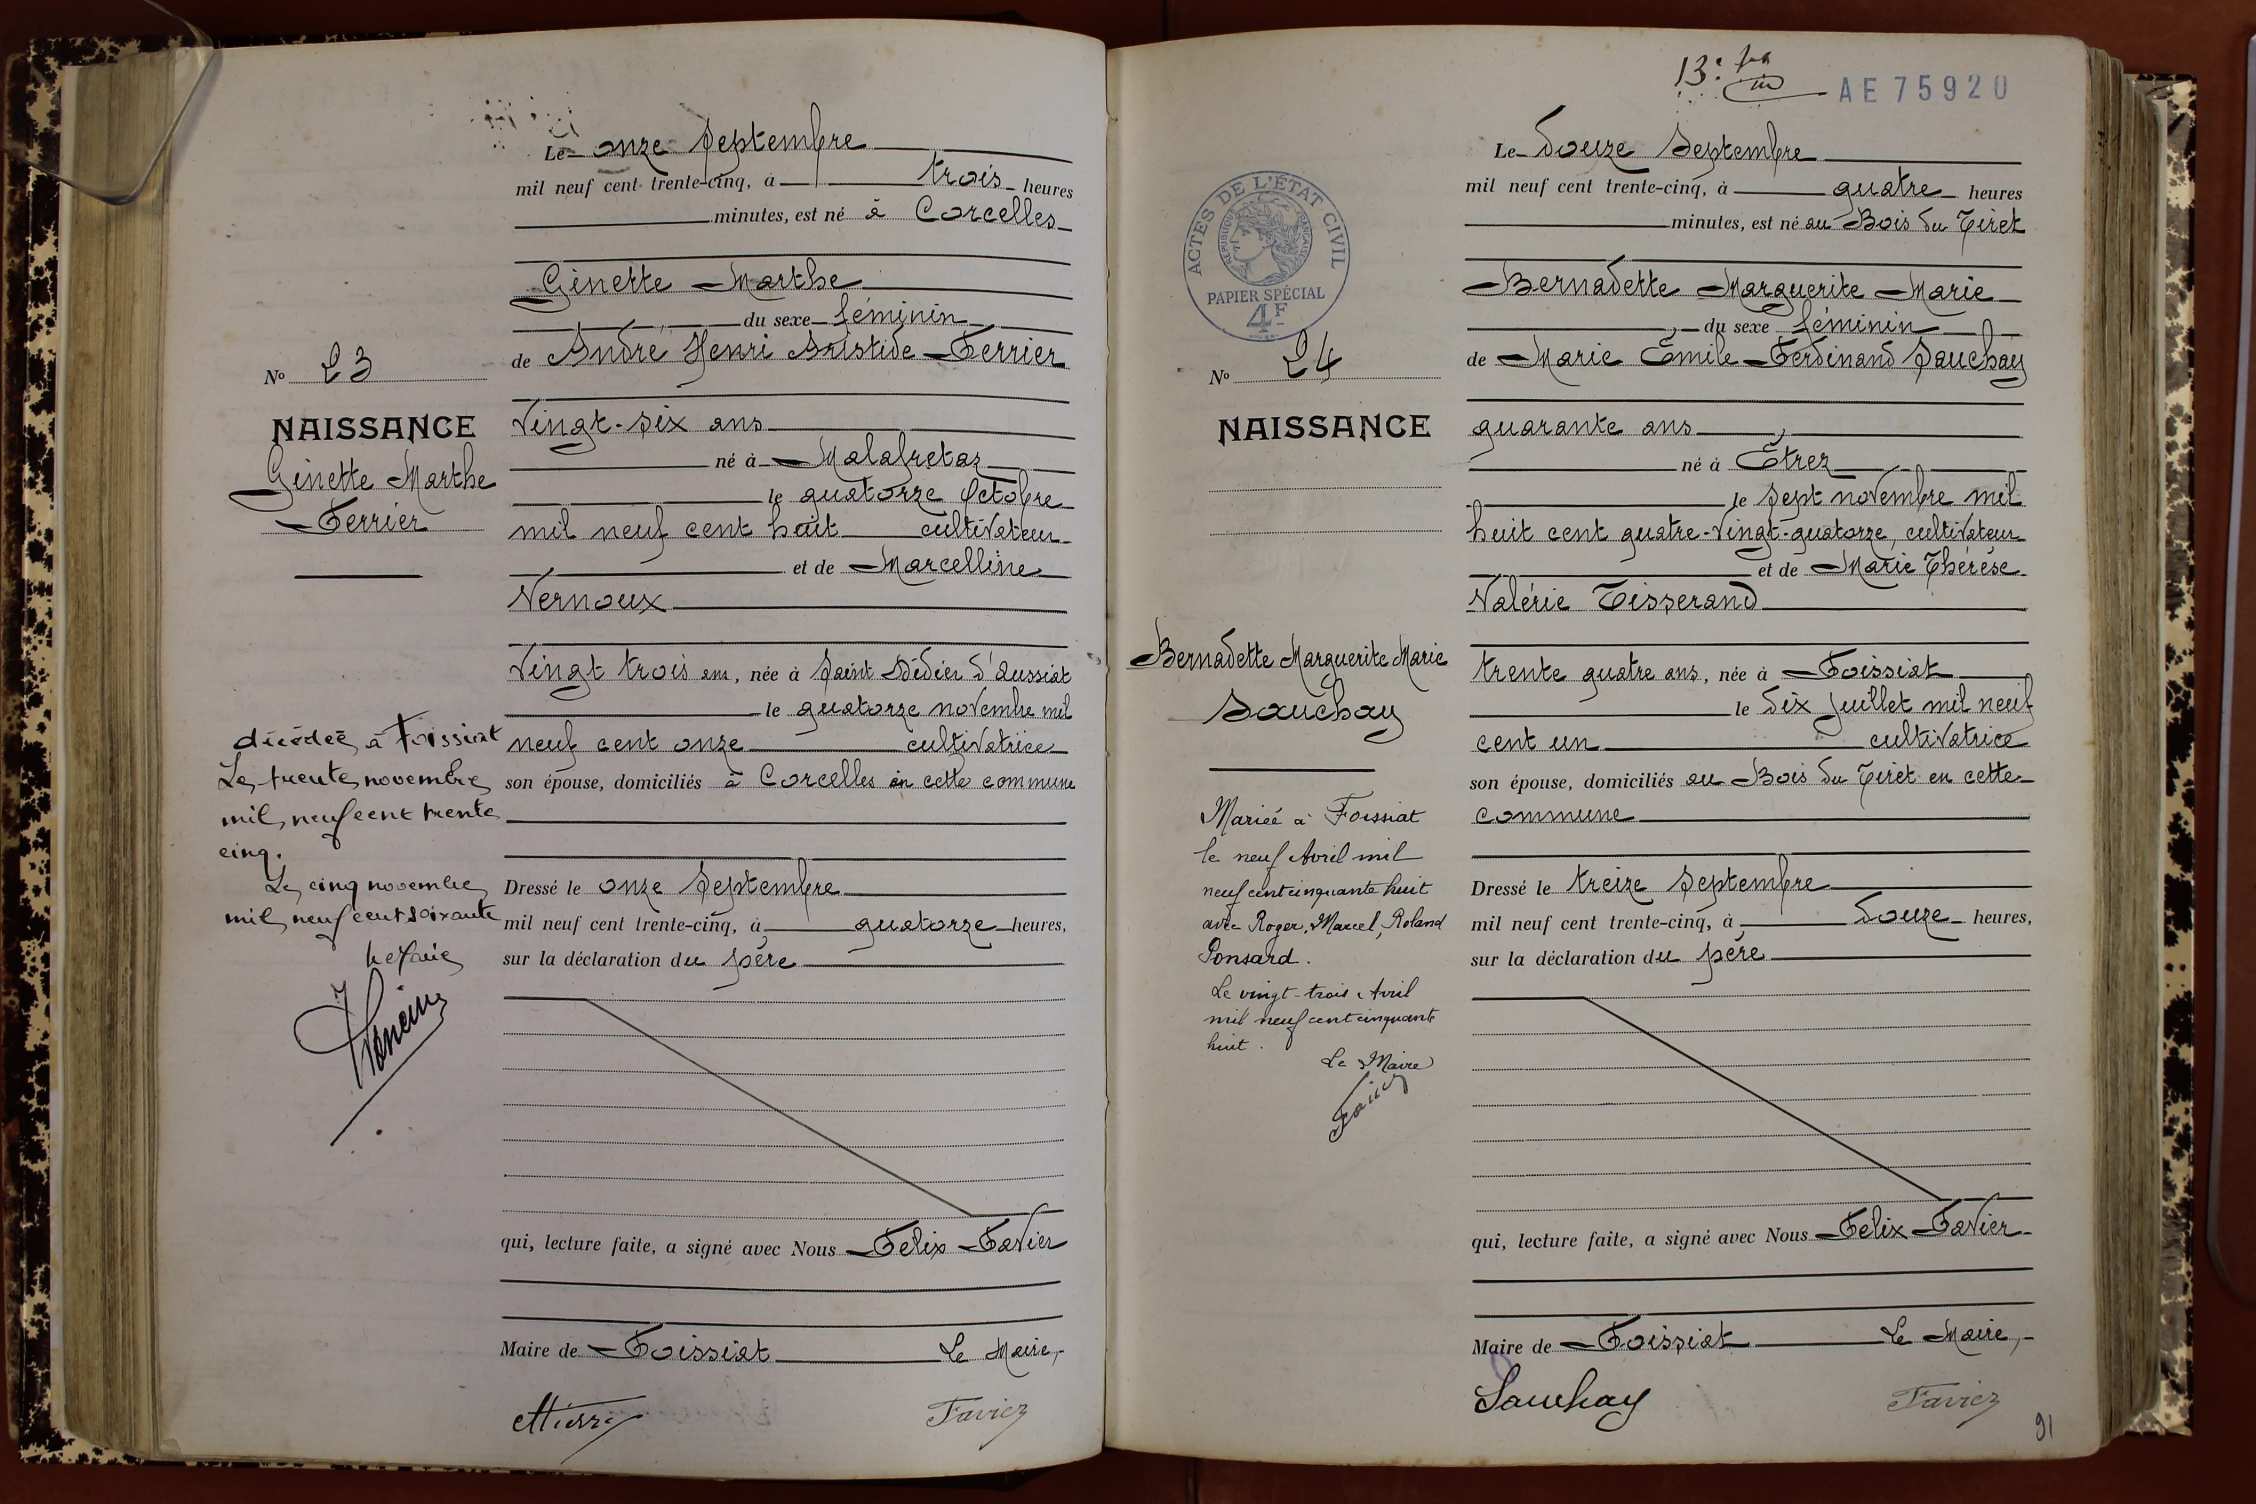 Le onze Septembre
mil neuf cent trente-cinq, à trois heures
minutes, est né à Corcelles
Ginette Marthe
du sexe féminin
de André Henri Aristide Ferrier
Vingt-six ans
né à Malafretaz
le quatorze Octobre
mil neuf cent huit cultivateur
et de Marcelline
Vernoux
Vingt trois ans, née à Saint Didier d'Aussiat
le quatorze novembre mil
neuf cent onze cultivatrice
son épouse, domiciliés à Corcelles en cette commune
Dressé le onze Septembre
mil neuf cent trente-cinq, à quatorze heures,
sur la déclaration du père
qui, lecture faite, a signé avec Nous Felix Favier
Maire de Foissiat Le Maire,
Favier
No 23
NAISSANCE
Ginette Marthe
Ferrier
décédée à Foissiat
Le trente novembre
mil neuf cent trente
cinq.
Le cinq novembre
mil neuf cent soixante
13e
AE 75920
ACTES DE L'ÉTAT CIVIL
RÉPUBLIQUE FRANÇAISE
PAPIER SPÉCIAL
4F
Le Douze Septembre
mil neuf cent trente-cinq, à quatre heures
minutes, est né au Bois du Tiret
Bernadette Marguerite Marie
du sexe féminin
de Marie Émile Ferdinand Sauchay
quarante ans
né à Étrez
le sept novembre mil
huit cent quatre-vingt-quatorze, cultivateur
et de Marie Thérèse
Valérie Tisserand
trente quatre ans, née à Foissiat
le dix Juillet mil neuf
cent un cultivatrice
son épouse, domiciliés au Bois du Tiret en cette
commune
Dressé le treize Septembre
mil neuf cent trente-cinq, à douze heures,
sur la déclaration du père
qui, lecture faite, a signé avec Nous Felix Favier
Maire de Foissiat Le Maire,
Sauchay Favier
No 24
NAISSANCE
Bernadette Marguerite Marie
Sauchay
Mariée à Foissiat
le neuf Avril mil
neuf cent cinquante huit
avec Roger, Marcel, Roland
Ponsard.
Le vingt-trois Avril
mil neuf cent cinquante
huit.
Le Maire
91